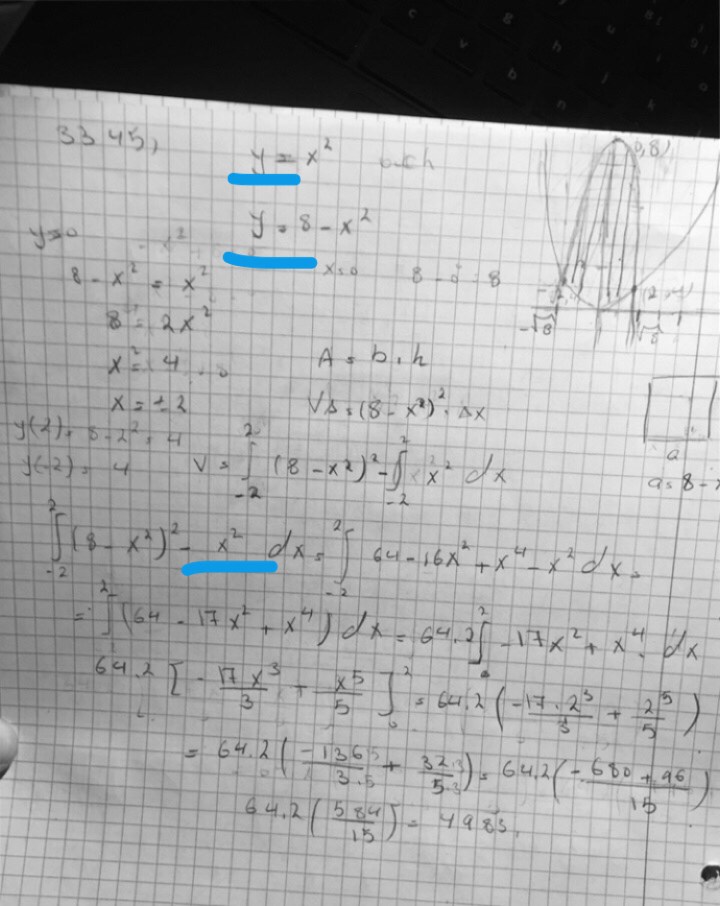 3345,
y = x² och
y = 8 - x²
y=0
x=0 8 - 0 = 8
8 - x² = x²
8 = 2x²
x² = 4
x = ±2
A = b . h
VΔ = (8 - x²)² . Δx
y(2) = 8 - 2² = 4
y(-2) = 4
V = ∫₋₂² (8 - x²)² - ∫₋₂² x² dx
∫₋₂² (8 - x²)² - x² dx = ∫₋₂² 64 - 16x² + x⁴ - x² dx =
= ∫ (64 - 17x² + x⁴) dx = 64.2 ∫₀² -17x² + x⁴ dx
64.2 [ - 17x³/3 + x⁵/5 ]₀² = 64.2 ( -17.2³/3 + 2⁵/5 )
= 64.2 ( -136 5/3.5 + 32.3/5.3 ) = 64.2 ( -680 + 96/15 )
64.2 ( 584/15 ) = 4983.
(0,8)
(2,4)
-√8 √8
a
a = 8 - x